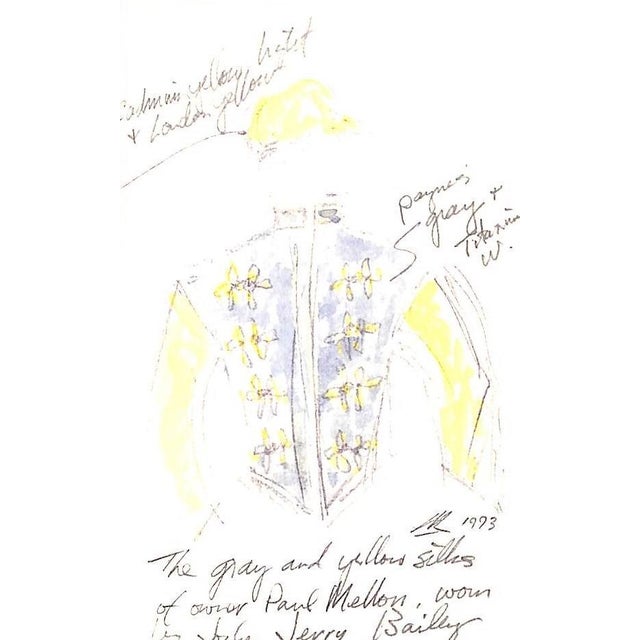 Cadmium yellow, hint of
+ London yellow
payne's
gray +
Titanium
W.
1993
The gray and yellow silks
of owner Paul Mellon, worn
by Jerry Bailey